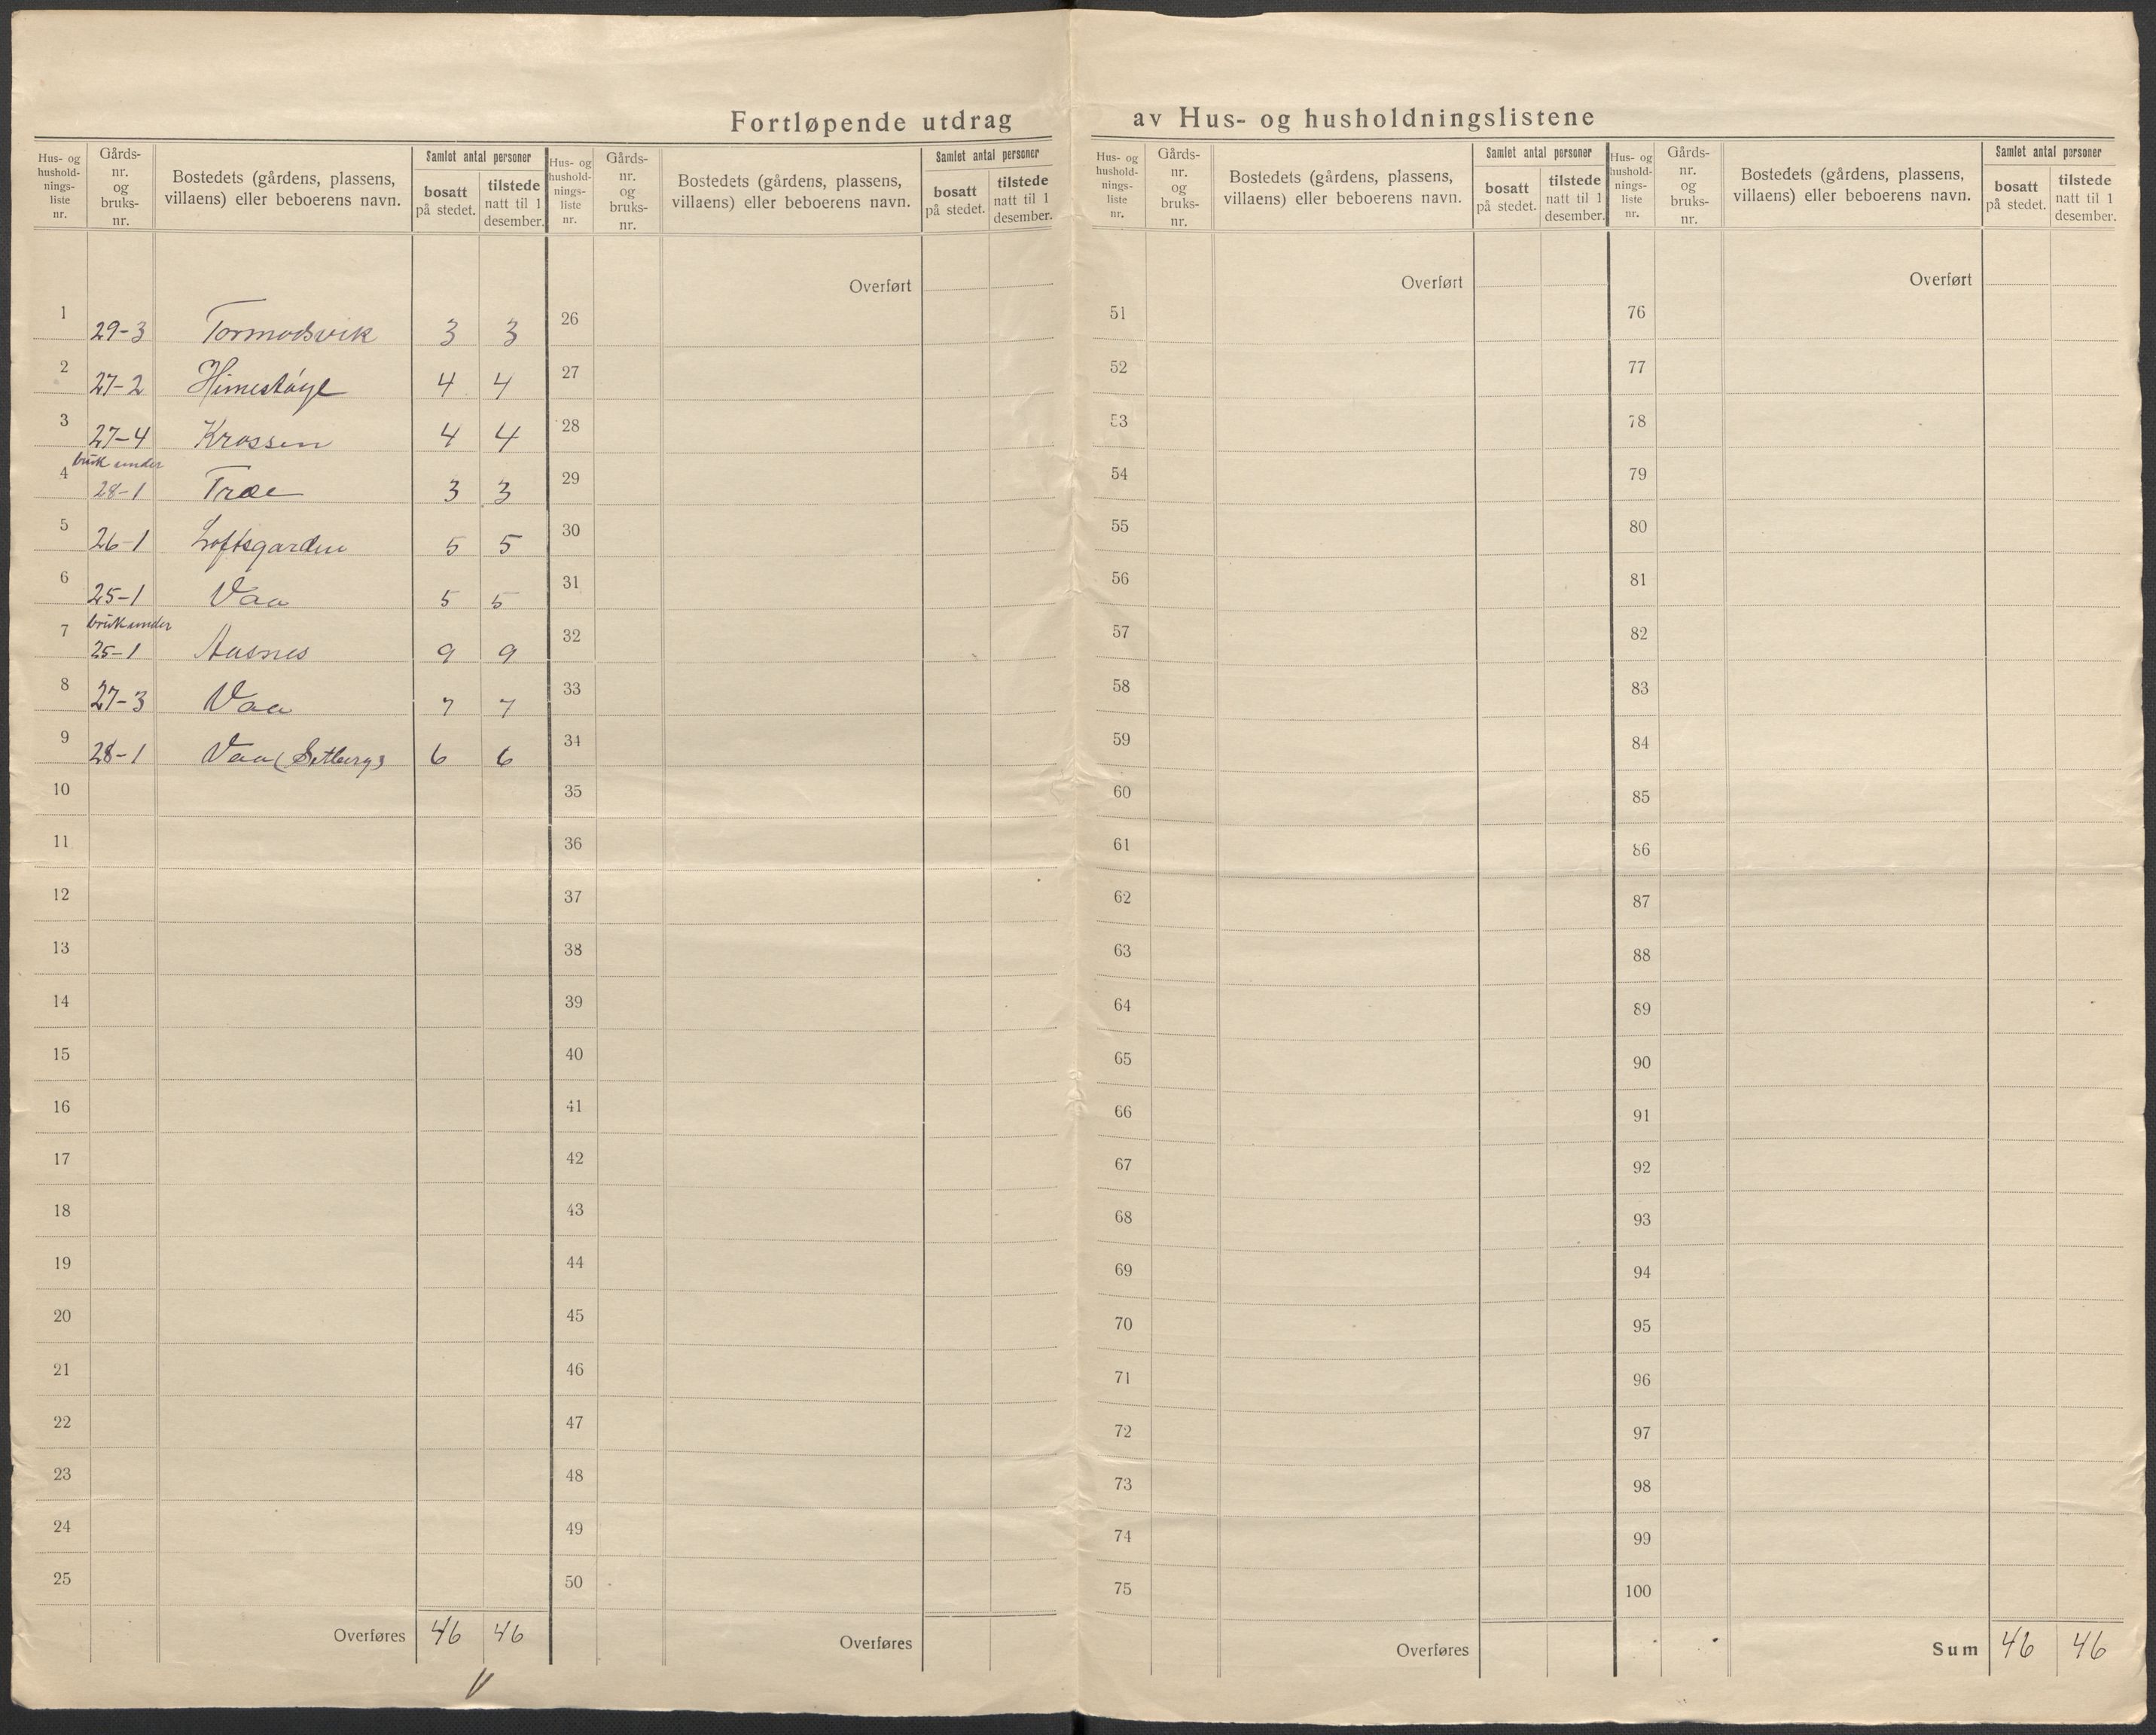 Fortløpende utdrag av Hus- og husholdningslistene
Hus- og hushold-nings-liste nr. | Gårds-nr. og bruks-nr. | Bostedets (gårdens, plassens, villaens) eller beboerens navn. | Samlet antal personer | bosatt på stedet. | tilstede natt til 1 desember.
1 29-3 Tormodsvik 3 3
2 27-2 Himestøyl 4 4
3 27-4 Krossen 4 4
4 bruk under 28-1 Træe 3 3
5 26-1 Loftsgarden 5 5
6 25-1 Vaa 5 5
7 bruk under 25-1 Aasnes 9 9
8 27-3 Vaa 7 7
9 28-1 Vaa (Setberg) 6 6
10
11
12
13
14
15
16
17
18
19
20
21
22
23
24
25
Overføres 46 46
Hus- og hushold-nings-liste nr. | Gårds-nr. og bruks-nr. | Bostedets (gårdens, plassens, villaens) eller beboerens navn. | Samlet antal personer | bosatt på stedet. | tilstede natt til 1 desember.
Overført
26
27
28
29
30
31
32
33
34
35
36
37
38
39
40
41
42
43
44
45
46
47
48
49
50
Overføres
Hus- og hushold-nings-liste nr. | Gårds-nr. og bruks-nr. | Bostedets (gårdens, plassens, villaens) eller beboerens navn. | Samlet antal personer | bosatt på stedet. | tilstede natt til 1 desember.
Overført
51
52
53
54
55
56
57
58
59
60
61
62
63
64
65
66
67
68
69
70
71
72
73
74
75
Overføres
Hus- og hushold-nings-liste nr. | Gårds-nr. og bruks-nr. | Bostedets (gårdens, plassens, villaens) eller beboerens navn. | Samlet antal personer | bosatt på stedet. | tilstede natt til 1 desember.
Overført
76
77
78
79
80
81
82
83
84
85
86
87
88
89
90
91
92
93
94
95
96
97
98
99
100
Sum 46 46